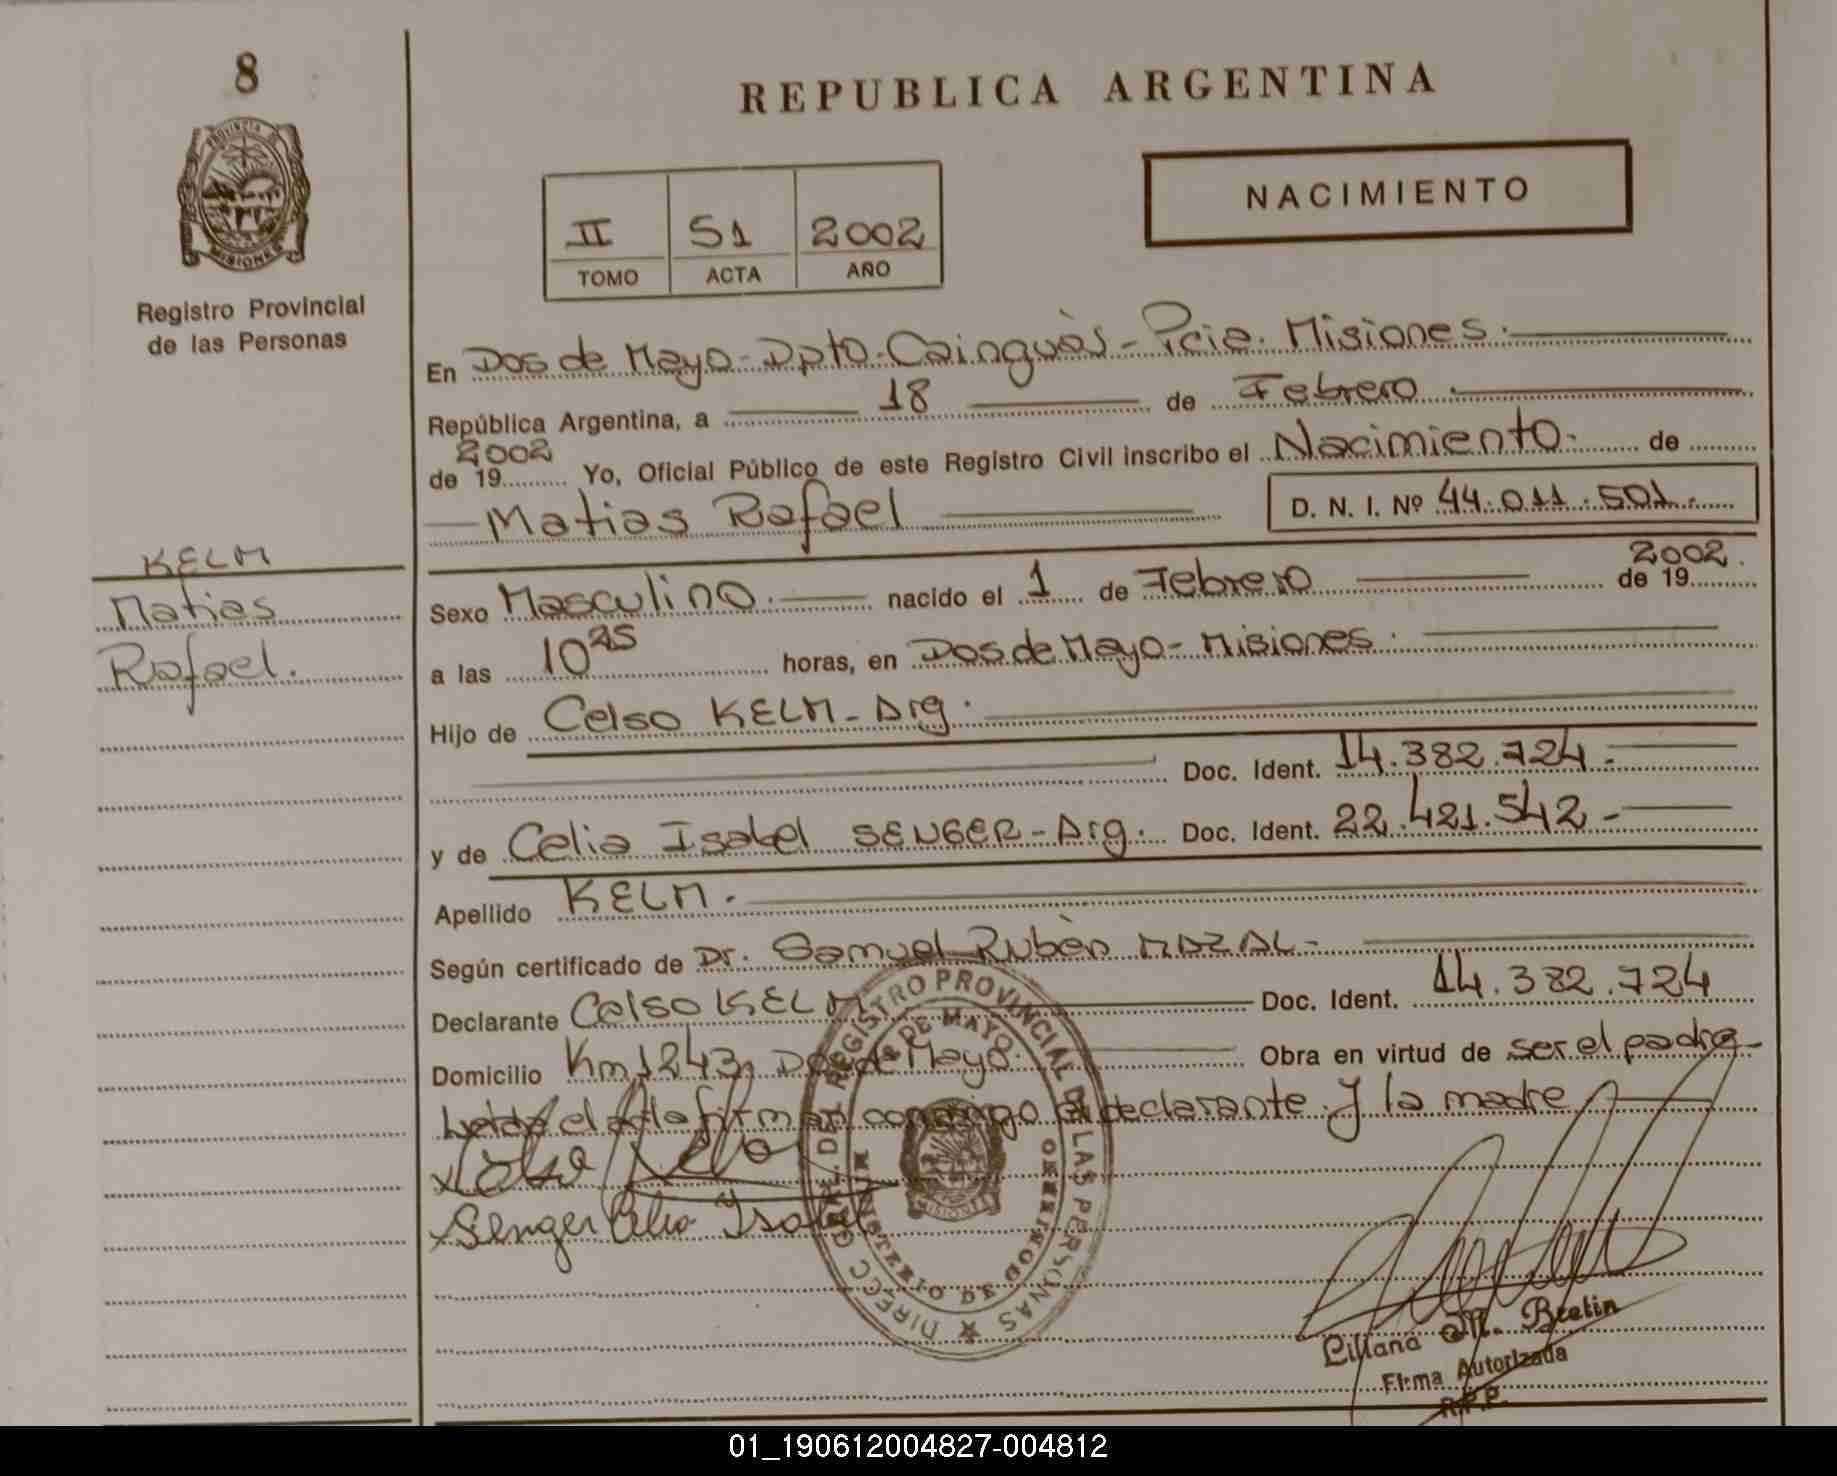 8
PROVINCIA DE
MISIONES
Registro Provincial
de las Personas
REPUBLICA ARGENTINA
NACIMIENTO
II 51 2002
TOMO ACTA AÑO
En Dos de Mayo - Dpto. Cainguàs - Pcia. Misiones.
República Argentina, a 18 de Febrero
2002
de 19 Yo, Oficial Público de este Registro Civil inscribo el Nacimiento. de
Matias Rafael D. N. I. Nº 44.011.501.
KELM
Matias
Rafael.
2002.
Sexo Masculino. nacido el 1 de Febrero de 19
a las 10 25 horas, en Dos de Mayo - Misiones.
Hijo de Celso KELM - Arg.
Doc. Ident. 14.382.724 -
y de Celia Isabel SENGER - Arg. Doc. Ident. 22.421.542 -
Apellido KELM.
Según certificado de Dr. Samuel Rubèn MAZAL -
Declarante Celso KELM Doc. Ident. 14.382.724
Domicilio Km 1243, Dos de Mayo. Obra en virtud de ser el padre -
Leida el acta firman conmigo el declarante y la madre
Senger Celia Isabel
DIRECC GRAL. DEL REGISTRO PROVINCIAL DE LAS PERSONAS
2 DE MAYO
MISIONES
Liliana M. Bretin
Firma Autorizada
R.P.P.
01_190612004827-004812